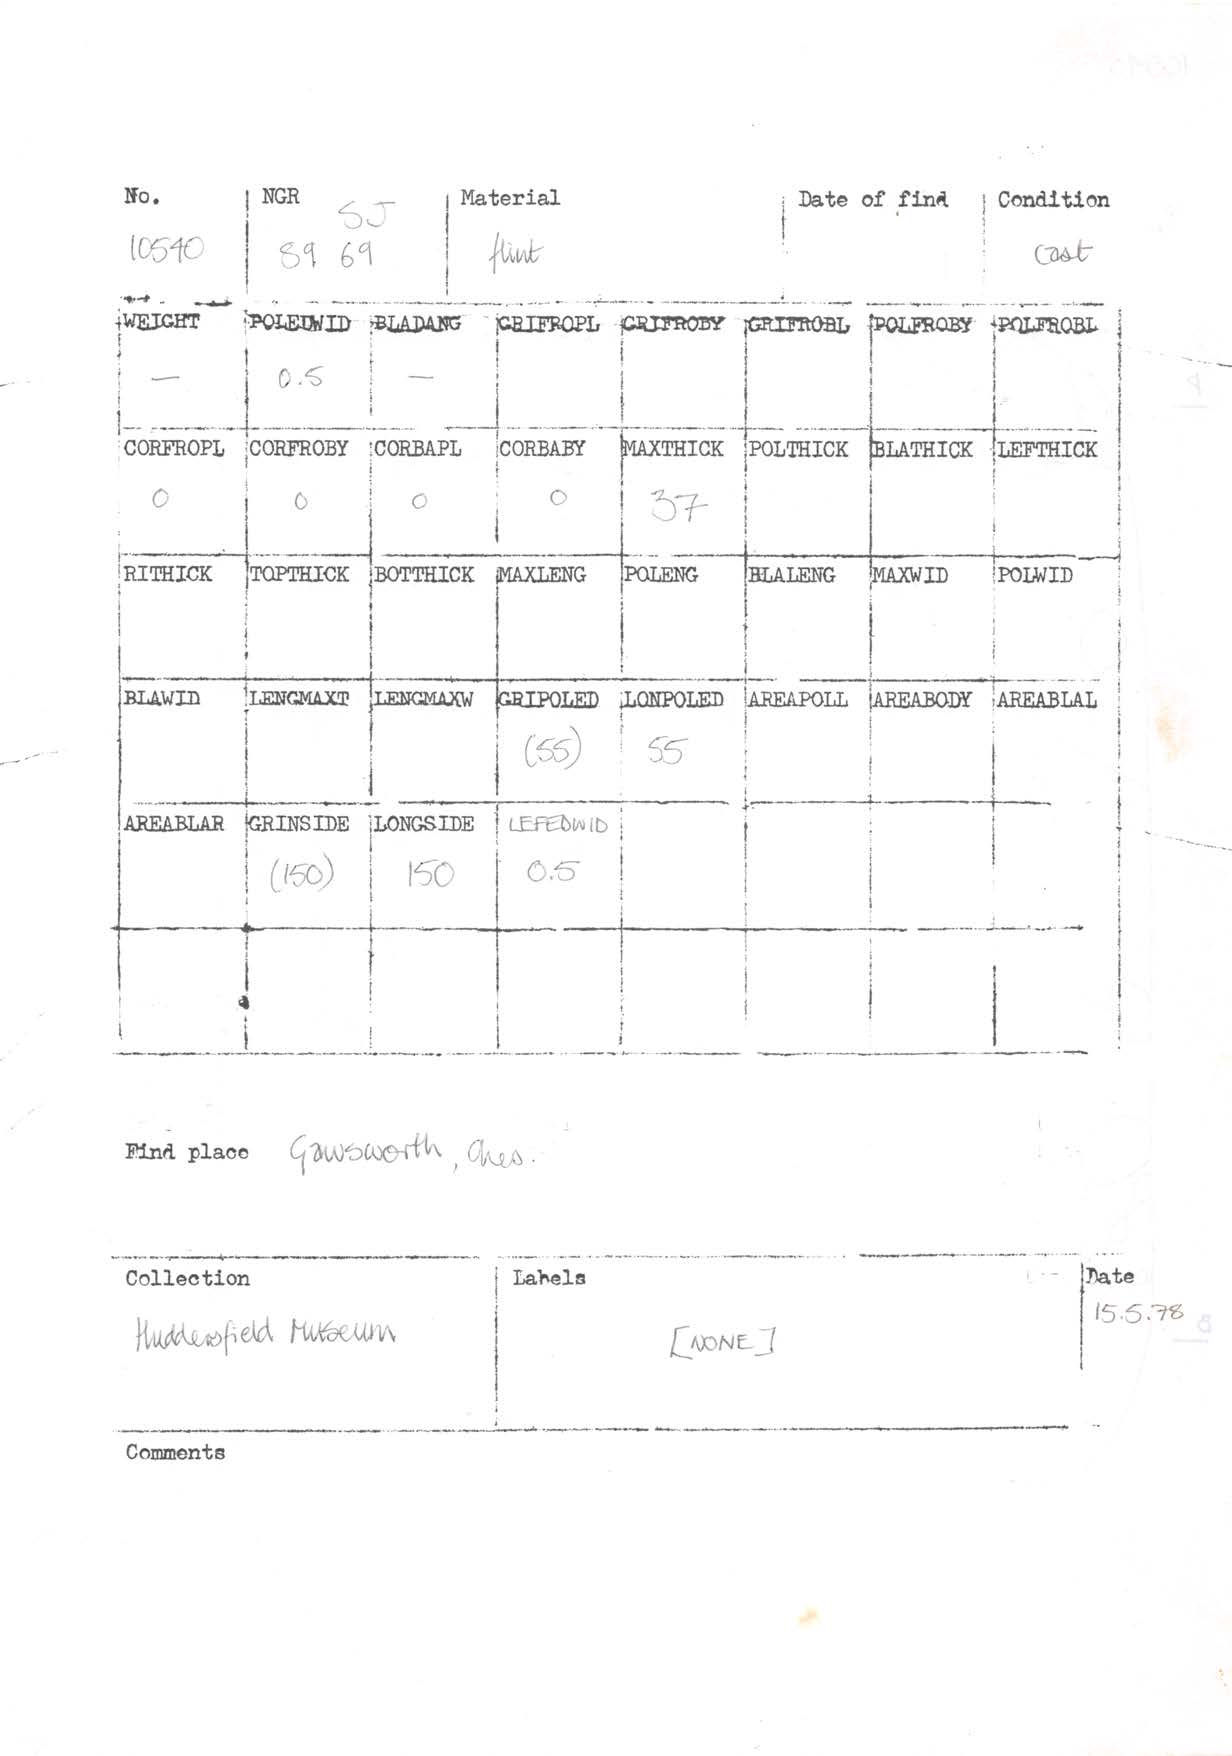 No. NGR Material Date of find Condition
SJ
10540 89 69 flint cast
WEIGHT POLEDWID BLADANG GRIFROPL GRIFROBY GRIFROBL POLFROBY POLFROBL
— 0.5 —
CORFROPL CORFROBY CORBAPL CORBABY MAXTHICK POLTHICK BLATHICK LEFTHICK
0 0 0 0 37
RITHICK TOPTHICK BOTTHICK MAXLENG POLENG BLALENG MAXWID POLWID
BLAWID LENGMAXT LENGMAXW GRIPOLED LONPOLED AREAPOLL AREABODY AREABLAL
(55) 55
AREABLAR GRINSIDE LONGSIDE LEFEDWID
(150) 150 0.5
Find place Gawsworth, Ches.
Collection Labels Date
15.5.78
Huddersfield Museum [NONE]
Comments